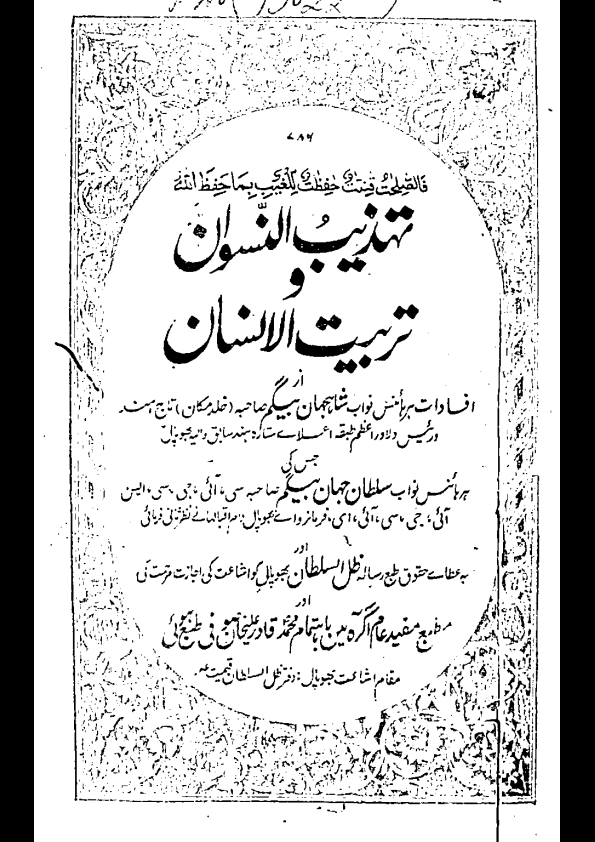 ۷۸۶
فَالصّٰلِحٰتُ قٰنِتٰتٌ حٰفِظٰتٌ لِّلْغَيْبِ بِمَا حَفِظَ اللهُ
تہذیبُ النّسوان
و
تربیت الانسان
از
افادات ہر ہائنس نواب شاہجہان بیگم صاحبہ (خلد مکان) تاج ہند
و رئیس دلاور اعظم طبقہ اعلاے ستارہ ہند سابق والیہ بھوپال
جس کی
ہر ہائنس نواب سلطان جہان بیگم صاحبہ سی، آئی، جی، سی، ایس
آئی، جی، سی، آئی، ای، فرمانرواے بھوپال دام اقبالہا نے نظر ثانی فرمائی
اور
بہ عطاے حقوق طبع رسالہ ظل السلطان بھوپال کو اشاعت کی اجازت مرحمت کی
اور
مطبع مفید عام آگرہ میں باہتمام محمد قادر علیخان صوفی طبع ہوئی
مقام اشاعت بھوپال: دفتر ظل السلطان قیمت